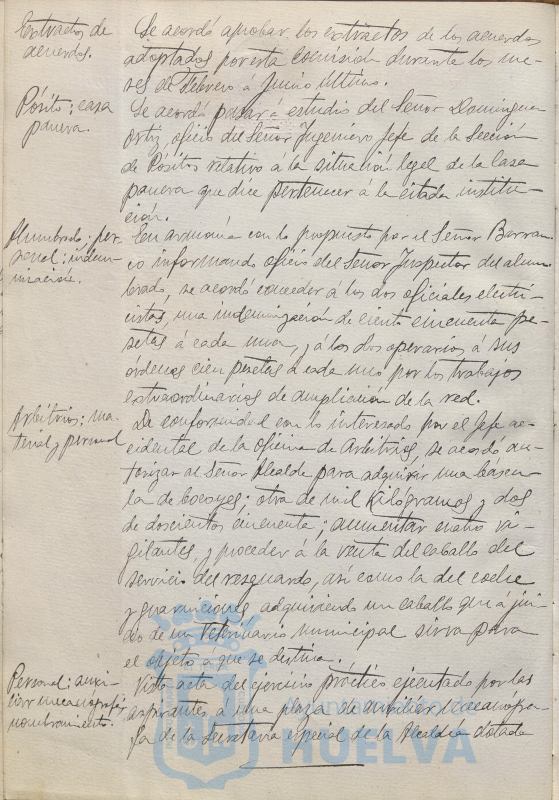 Extractos de
acuerdos.
Se acordó aprobar los extractos de los acuerdos
adoptados por esta Comisión durante los me-
ses de Febrero á Junio último.
Pósito; casa
panera.
Se acordó pasar á estudio del Señor Domínguez
Ortiz, oficio del Señor Ingeniero Jefe de la Sección
de Pósitos relativo á la situación legal de la Casa
panera que dice pertenecer á la citada institu-
ción.
Alumbrado; per-
sonal; indem-
nización.
En armonía con lo propuesto por el Señor Barran-
co informando oficio del Señor Inspector del alum-
brado, se acordó conceder á los dos oficiales electri-
cistas, una indemnización de ciento cincuenta pe-
setas á cada uno, y á los dos operarios á sus
órdenes cien pesetas á cada uno por los trabajos
extraordinarios de ampliación de la red.
Arbitrios; ma-
terial y personal
De conformidad con lo interesado por el Jefe ac-
cidental de la Oficina de Arbitrios, se acordó au-
torizar al Señor Alcalde para adquirir una báscu-
la de bocoyes; otra de mil Kilógramos y dos
de doscientos cincuenta; aumentar cuatro vi-
gilantes, y proceder á la venta del caballo del
servicio del resguardo, así como la del coche
y guarniciones adquiriendo un caballo que á jui-
cio de un Veterinario municipal sirva para
el objeto á que se destina.
Personal; auxi-
liar mecanógrafo;
nombramiento.
Vista acta del ejercicio práctico ejecutado por los
aspirantes á una plaza de auxiliar mecanógra-
fa de la Secretaría especial de la Alcaldía dotada
HUELVA